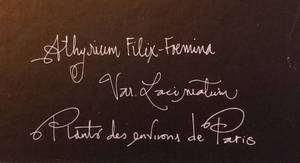 Athyrium Filix-Foemina
Var. Laciniatum
Plants des environs de Paris